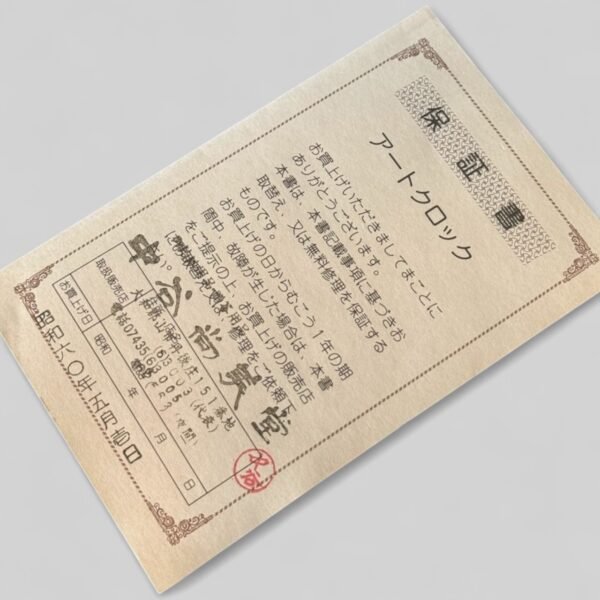 保証書
アートクロック
お買上げいただきましてまことに
ありがとうございます。
本書は、本書記載事項に基づきお
取替え、又は無料修理を保証する
ものです。
お買上げの日からむこう1年の期
間中、故障が生じた場合は、本書
をご提示の上、お買上げの販売店
修理をご依頼下
中谷尚美堂
151番地
(代表)
(夜間)
取扱販売店
お買上げ日 昭和 年 月 日
中谷
昭和六〇年五月壱日